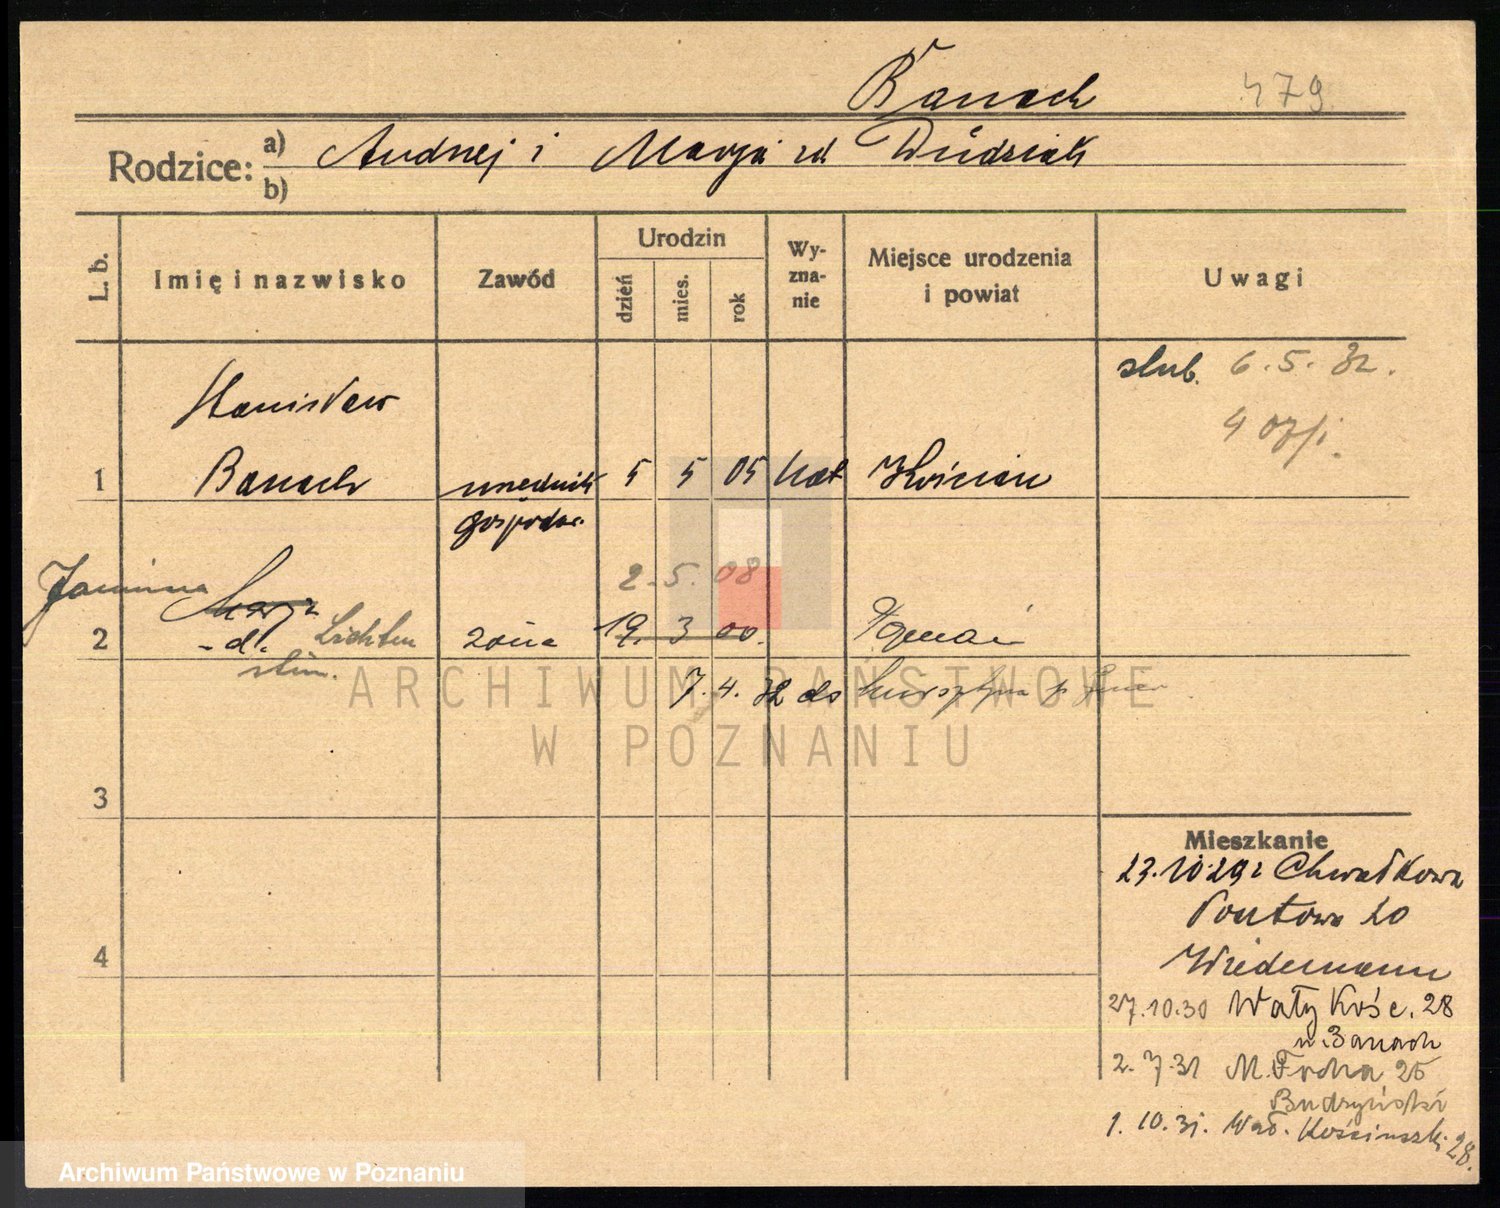 Banach 479
Rodzice: a) Andrzej i Marja zd Dudziak
b)
L. b. Imię i nazwisko Zawód Urodzin dzień mies. rok Wyznanie Miejsce urodzenia i powiat Uwagi
ślub. 6.5.32.
Stanisław
1 Banach urzędnik 5 5 05 kat Kościan
gospodar.
2.5.08
Janina Marja
2 -d. Lichten żona 19. 3 00. Poznań
stein.
7.4.32 do
3
4
Mieszkanie
23.10.29 z Chwałkowa
Pocztowa 20
Wiedemann
27.10.30 Wały Kośc. 28
u. Banach
2.7.31 M. Focha 25
Budzyński
1.10.31. Wał. Kościuszki 28.
ARCHIWUM PAŃSTWOWE
W POZNANIU
Archiwum Państwowe w Poznaniu